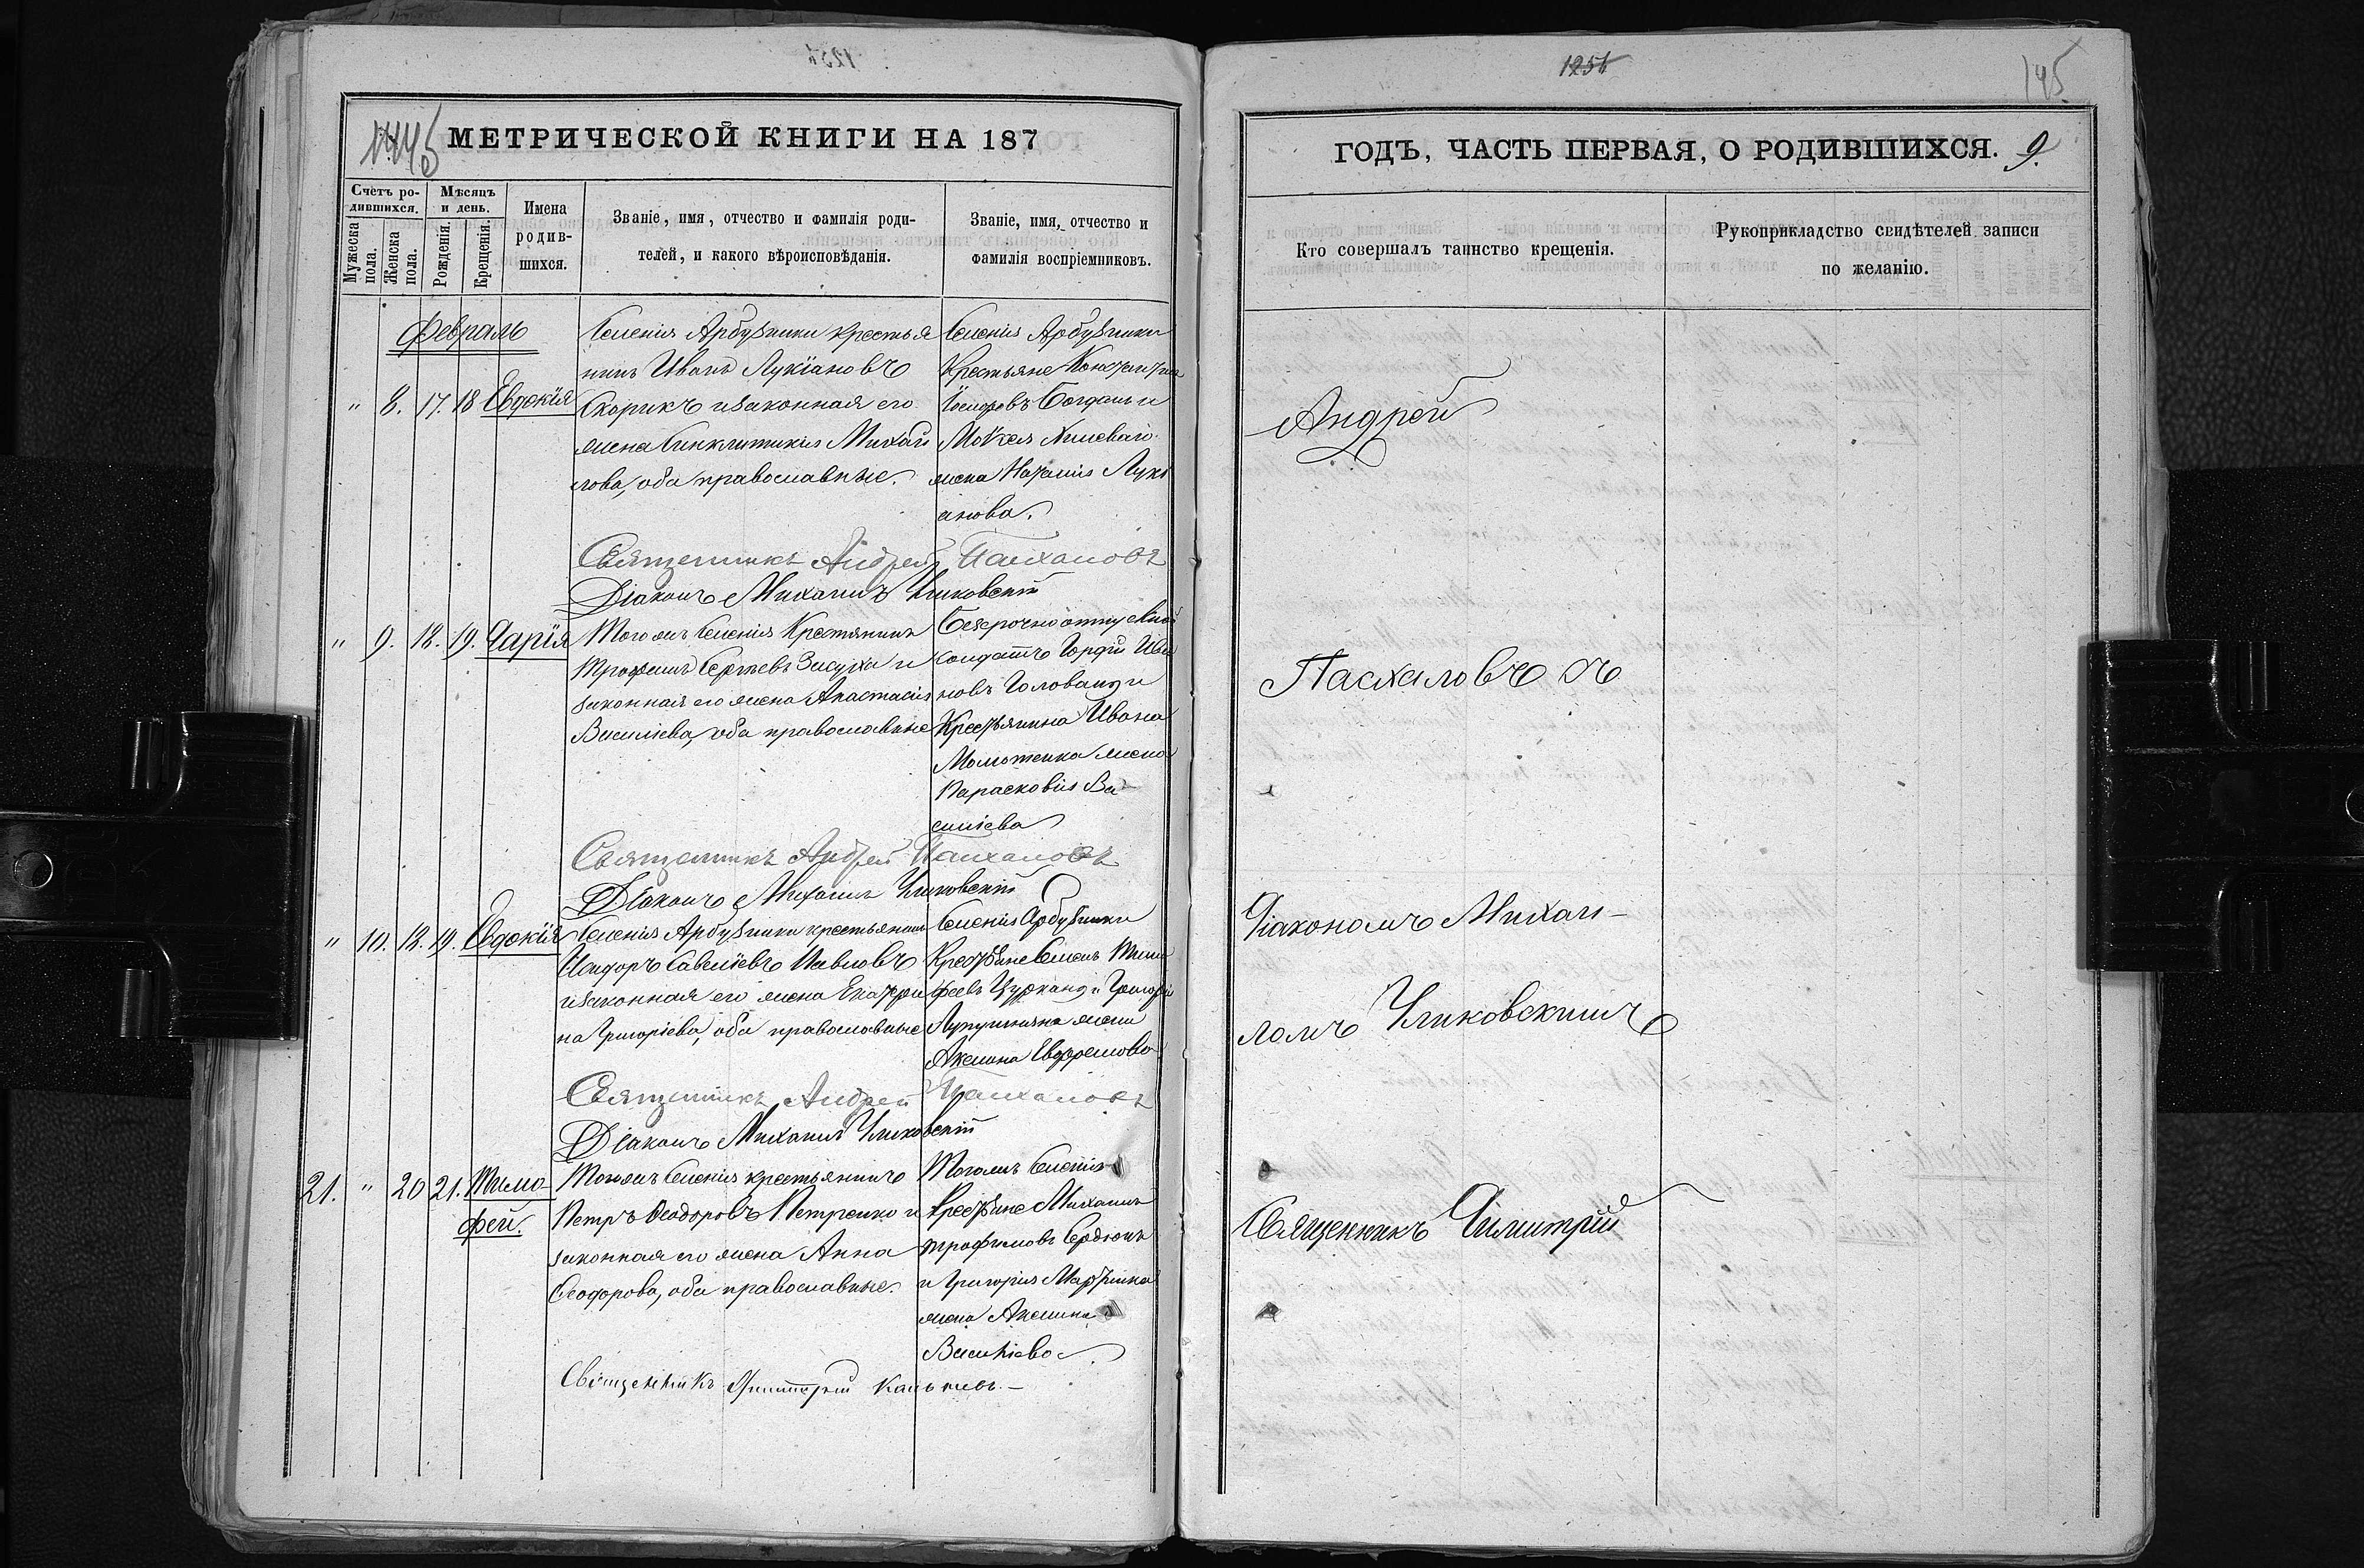 125
1445
МЕТРИЧЕСКОЙ КНИГИ НА 187
Счетъ ро-
дившихся.
Мѣсяцъ
и день.
Мужеска
пола.
Женска
пола.
Рожденія.
Крещенія.
Имена
родив-
шихся.
Званіе, имя, отчество и фамилія роди-
телей, и какого вѣроисповѣданія.
Званіе, имя, отчество и
фамилія воспріемниковъ.
Февраль
" 8. 17. 18 Евдокія
Селенія Арбузинки крестья
нинъ Иванъ Лукіановъ
Скорикъ и законная его
жена Синклитикія Михаи
лова, оба православные.
Селенія Арбузинки
Крестьяне
Богданъ и
жена Наталія Луки
анова.
Священникъ Андрей Пасхаловъ
Діаконъ Михаилъ Чвиковскій
" 9. 18. 19. Дарія
Того жъ Селенія Крестянинъ
Трофимъ Сергіевъ Засуха и
законная его жена Анастасія
Василіева, оба православные
Безсрочно отпускной
солдатъ Гордій Ива
новъ Голованъ и
Крестьянина Ивана
жена
Парасковія Ва
силіева
Священникъ Андрей Пасхаловъ
Діаконъ Михаилъ
" 10. 18. 19. Евдокія
Селенія Арбузинки крестьянинъ
Исидоръ Савеліевъ Павловъ
и законная его жена Екатери
на Григоріева, оба православные
Селенія Арбузинки
Крестьяне Семенъ Тимо
феевъ Цурканъ и Григорія
жена
Акелина Евфремова
Священникъ Андрей Пасхаловъ
Діаконъ Михаилъ
21. " 20 21. Тимо
фей.
Того жъ Селенія крестьянинъ
Петръ Ѳеодоровъ Петренко и
законная его жена Анна
Ѳеодорова, оба православные.
Того жъ Селенія
Крестьяне Михаилъ
Трофимовъ Сердюкъ
и Григорія
жена Акелина
Василіева.
Священникъ Димитрій
125
145
ГОДЪ, ЧАСТЬ ПЕРВАЯ, О РОДИВШИХСЯ. 9.
Кто совершалъ таинство крещенія.
Рукоприкладство свидѣтелей записи
по желанію.
Андрей
Пасхаловъ съ
Діакономъ Михаи-
ломъ
Священникъ Димитрій